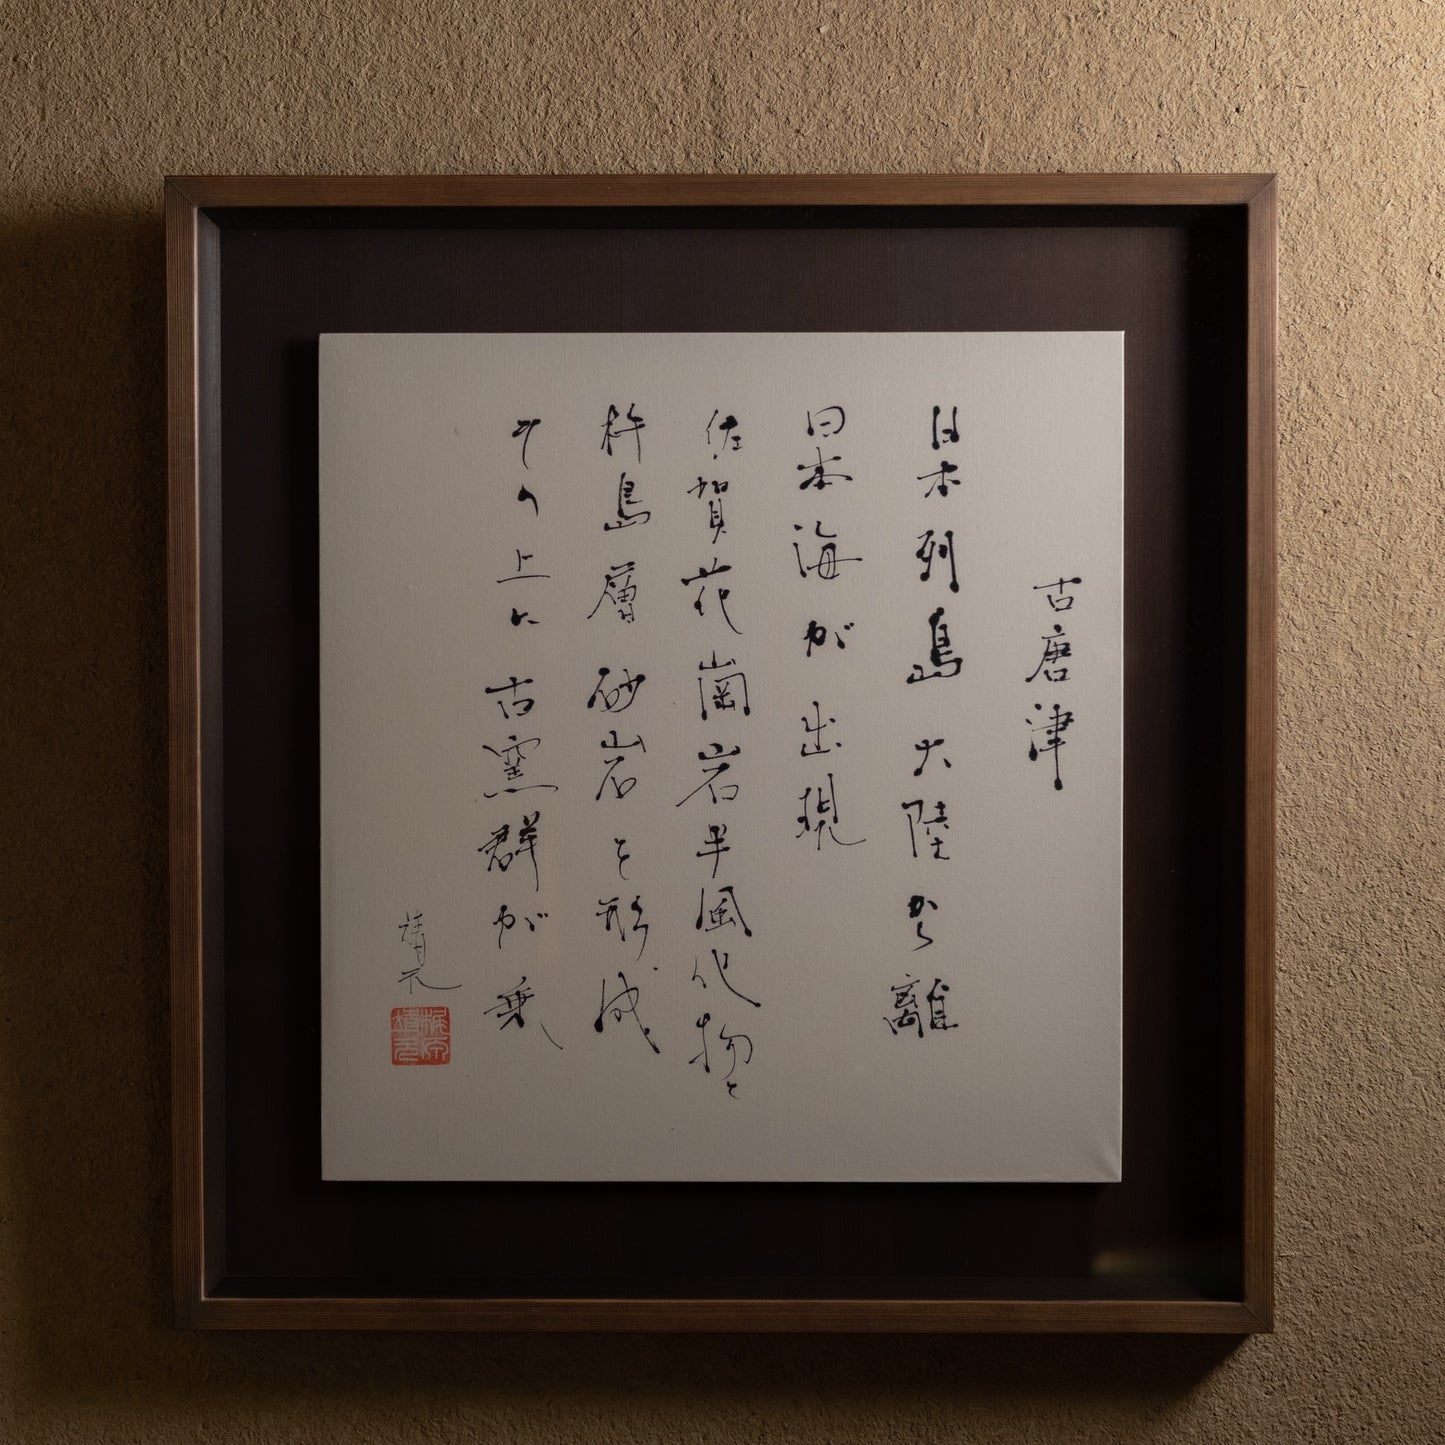 古唐津
日本列島大陸から離
日本海が出現
佐賀花崗岩半風化物と
杵島層砂岩を形成
その上に古窯群が乗
靖元
梶原靖元